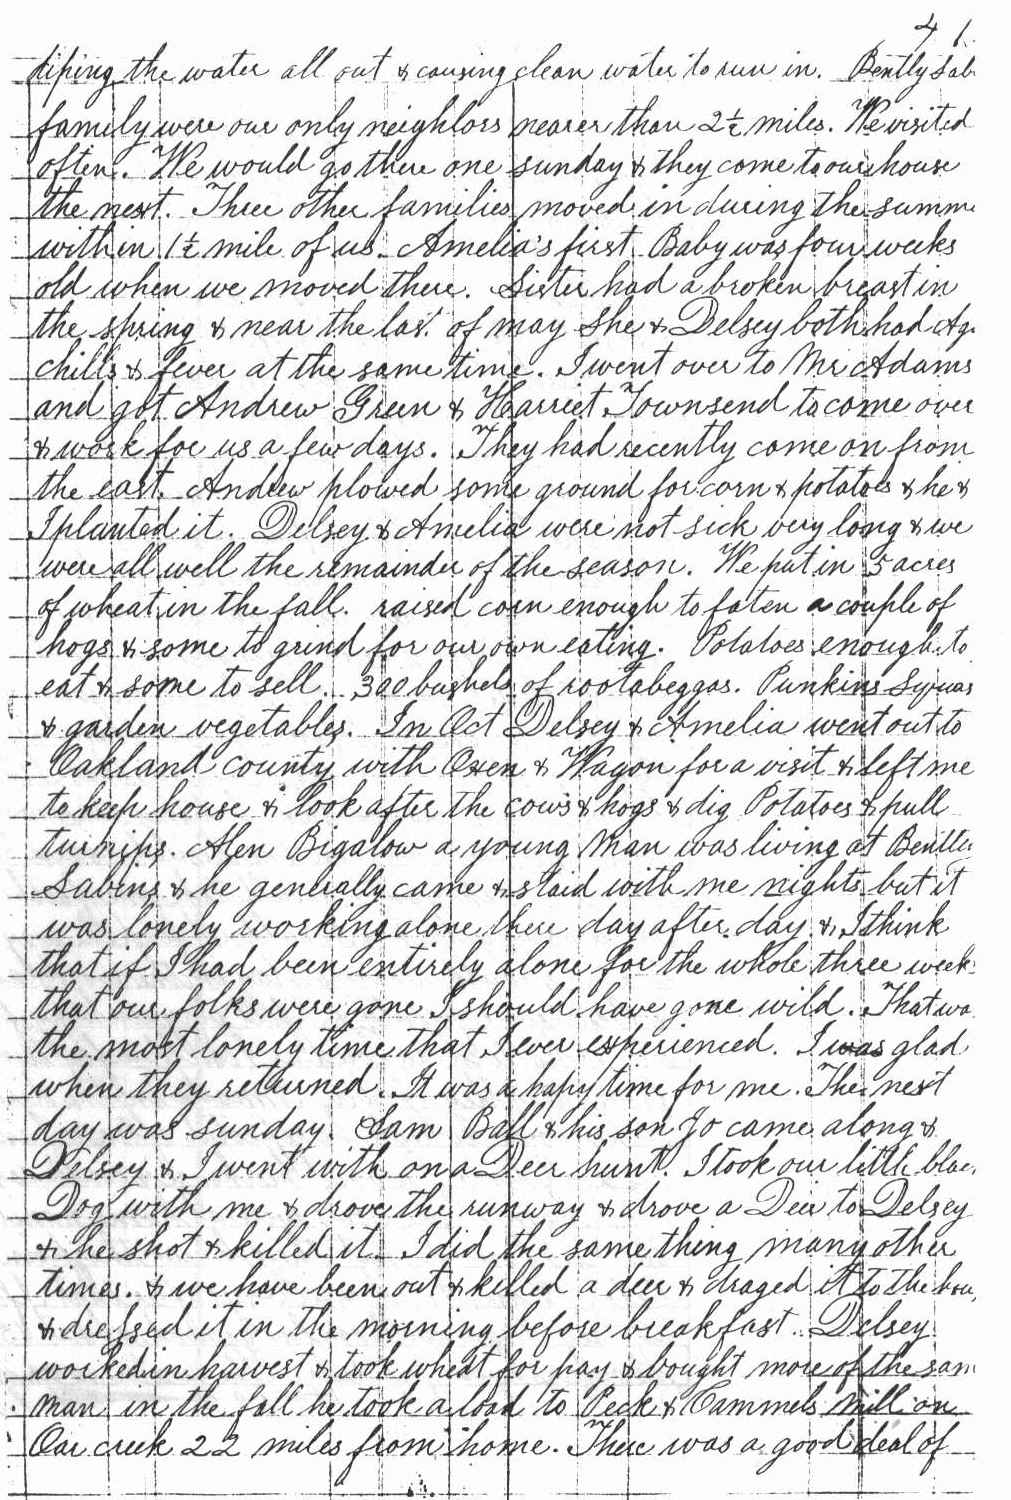 41
diping the water all out & causing clean water to run in. Bently Sab
family were our only neighbors nearer than 2½ miles. We visited
often. We would go there one sunday & they come to our house
the next. Three other families moved in during the summe
within 1½ mile of us. Amelia's first Baby was four weeks
old when we moved there. Sister had a broken breast in
the spring & near the last of may She & Delsey both had Agu
chills & fever at the same time. I went over to Mr Adams
and got Andrew Green & Harriet Townsend to come over
& work for us a few days. They had recently come on from
the east. Andrew plowed some ground for corn & potatoes & he &
I planted it. Delsey & Amelia were not sick very long & we
were all well the remainder of the season. We put in 5 acres
of wheat in the fall. raised corn enough to faten a couple of
hogs & some to grind for our own eating. Potatoes enough to
eat & some to sell. 300 bushels of rootabeggas. Punkins Squas
& garden vegetables. In Oct Delsey & Amelia went out to
Oakland county with Oxen & Wagon for a visit & left me
to keep house & look after the cows & hogs & dig Potatoes & pull
turnips. Alen Bigalow a young man was living at Bently
Sabins & he generally came & staid with me nights but it
was lonely working alone there day after day & I think
that if I had been entirely alone for the whole three week
that our folks were gone I should have gone wild. That wa
the most lonely time that I ever experienced. I was glad
when they returned. It was a hapy time for me. The next
day was sunday. Sam Ball & his son Jo came along &
Delsey & I went with on a Deer hunt. I took our little blac
Dog with me & drove the runway & drove a Deer to Delsey
& he shot & killed it. I did the same thing many other
times. & we have been out & killed a deer & draged it to the hou
& dressed it in the morning before breakfast. Delsey
worked in harvest & took wheat for pay & bought more of the sam
man in the fall he took a load to Peck & Cammels mill on
Oar creek 22 miles from home. There was a good deal of